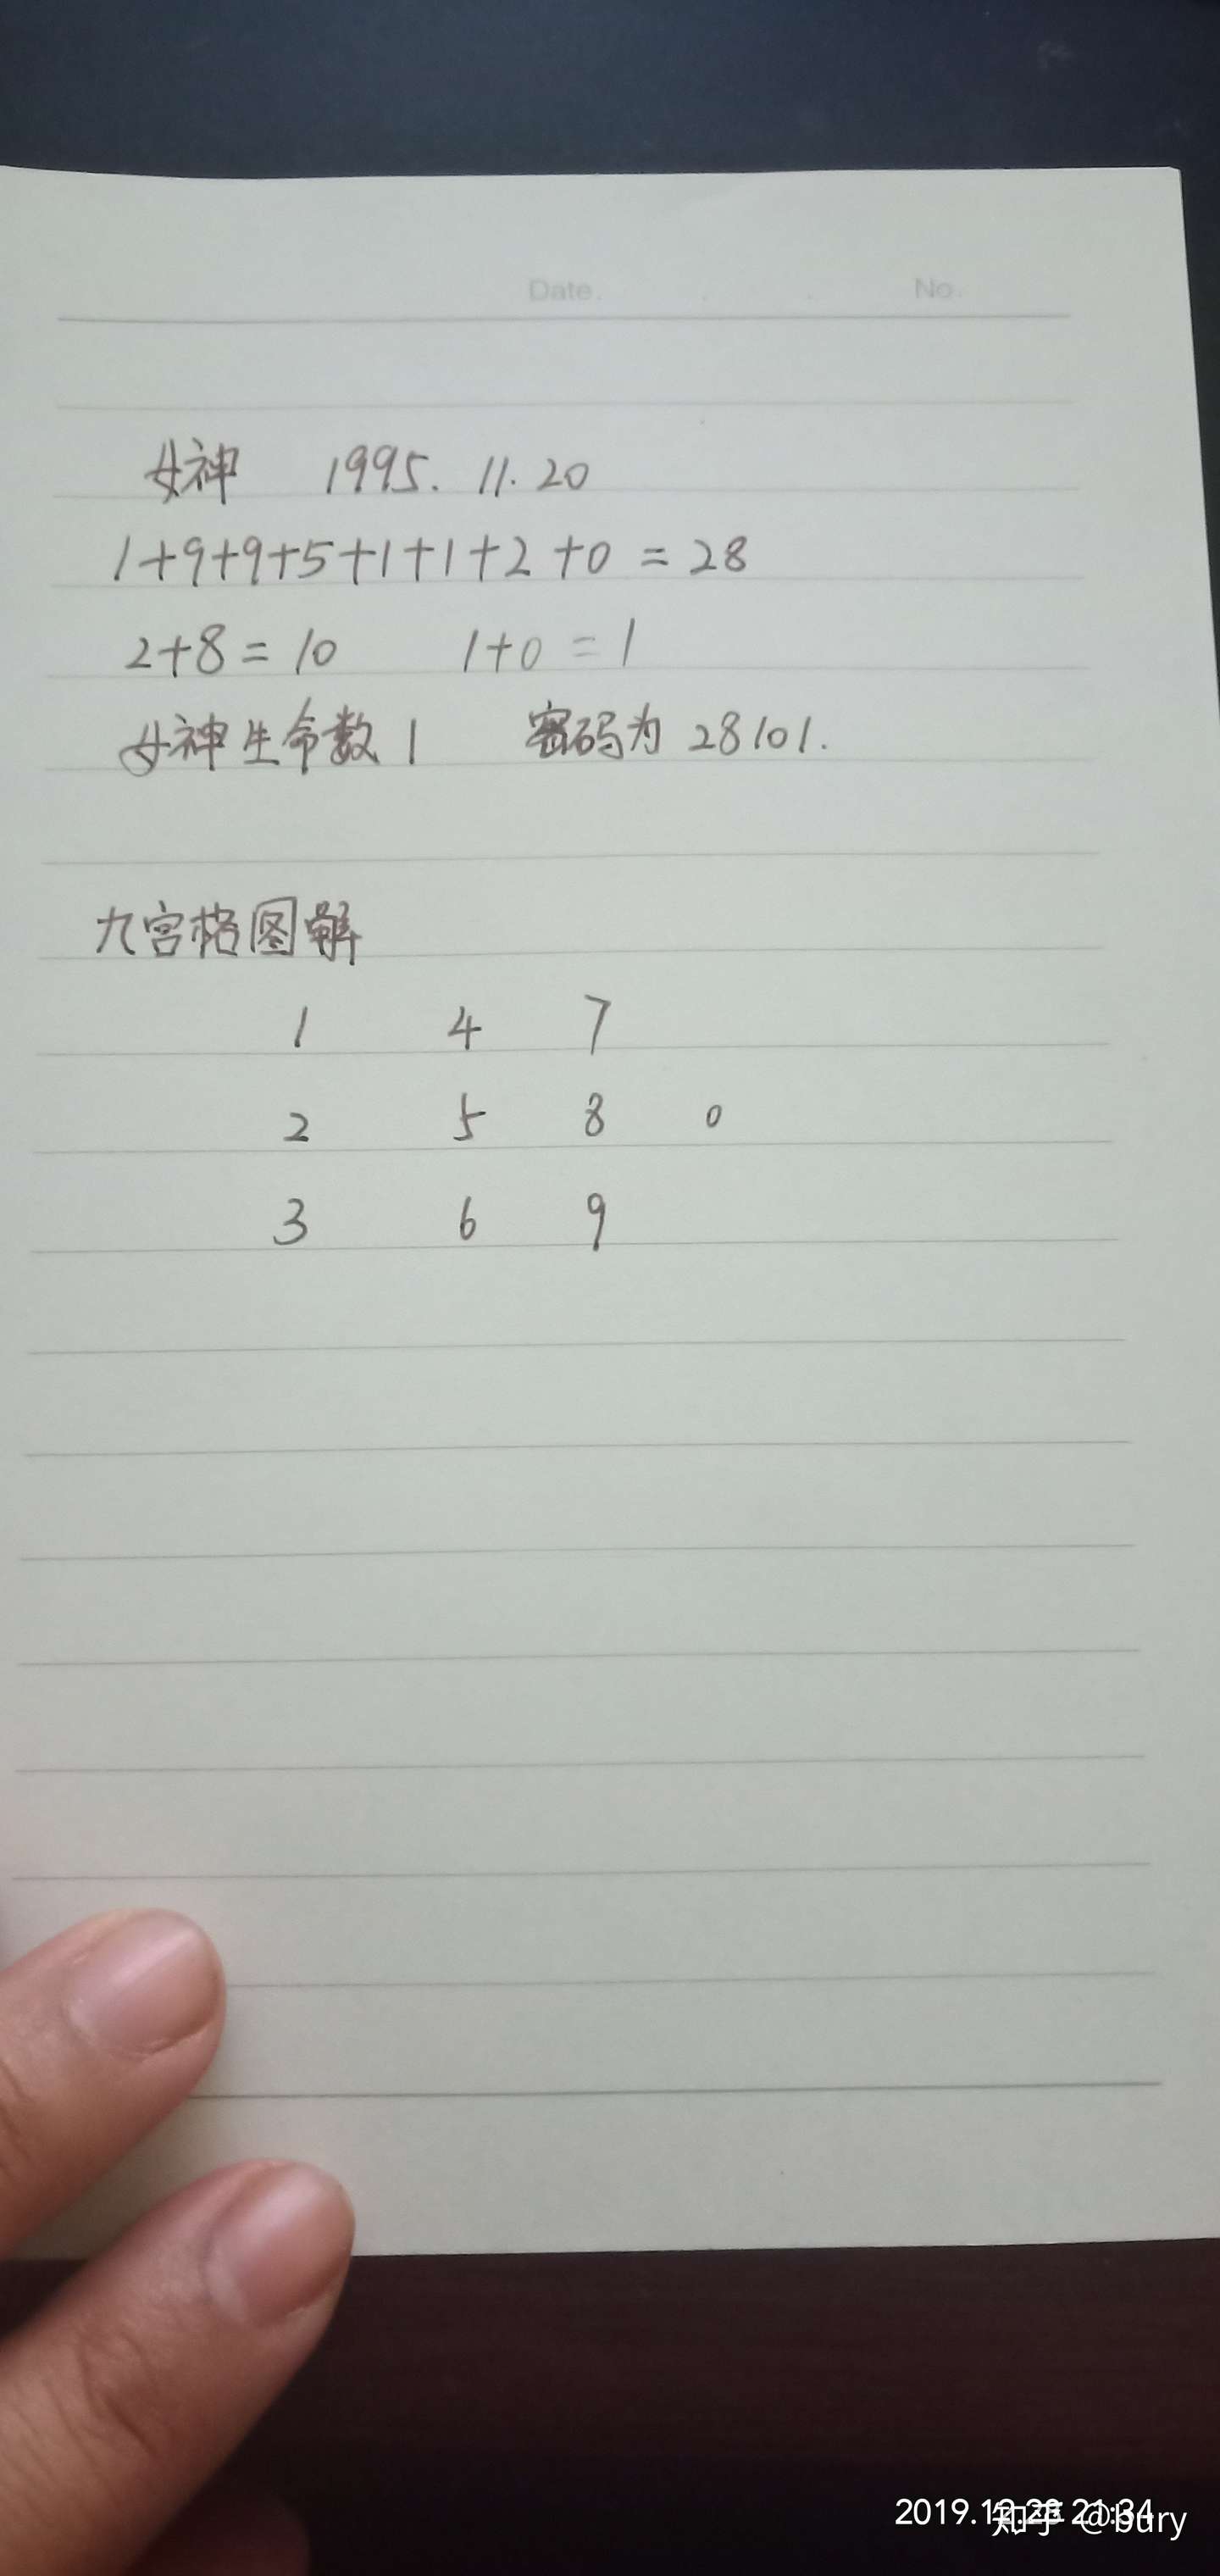 Date. No.
女神 1995. 11. 20
1+9+9+5+1+1+2+0 = 28
2+8= 10 1+0 = 1
女神生命数1 密码为 28101.
九宫格图解
1 4 7
2 5 8 0
3 6 9
2019.12.28 21:34
知乎 @bury